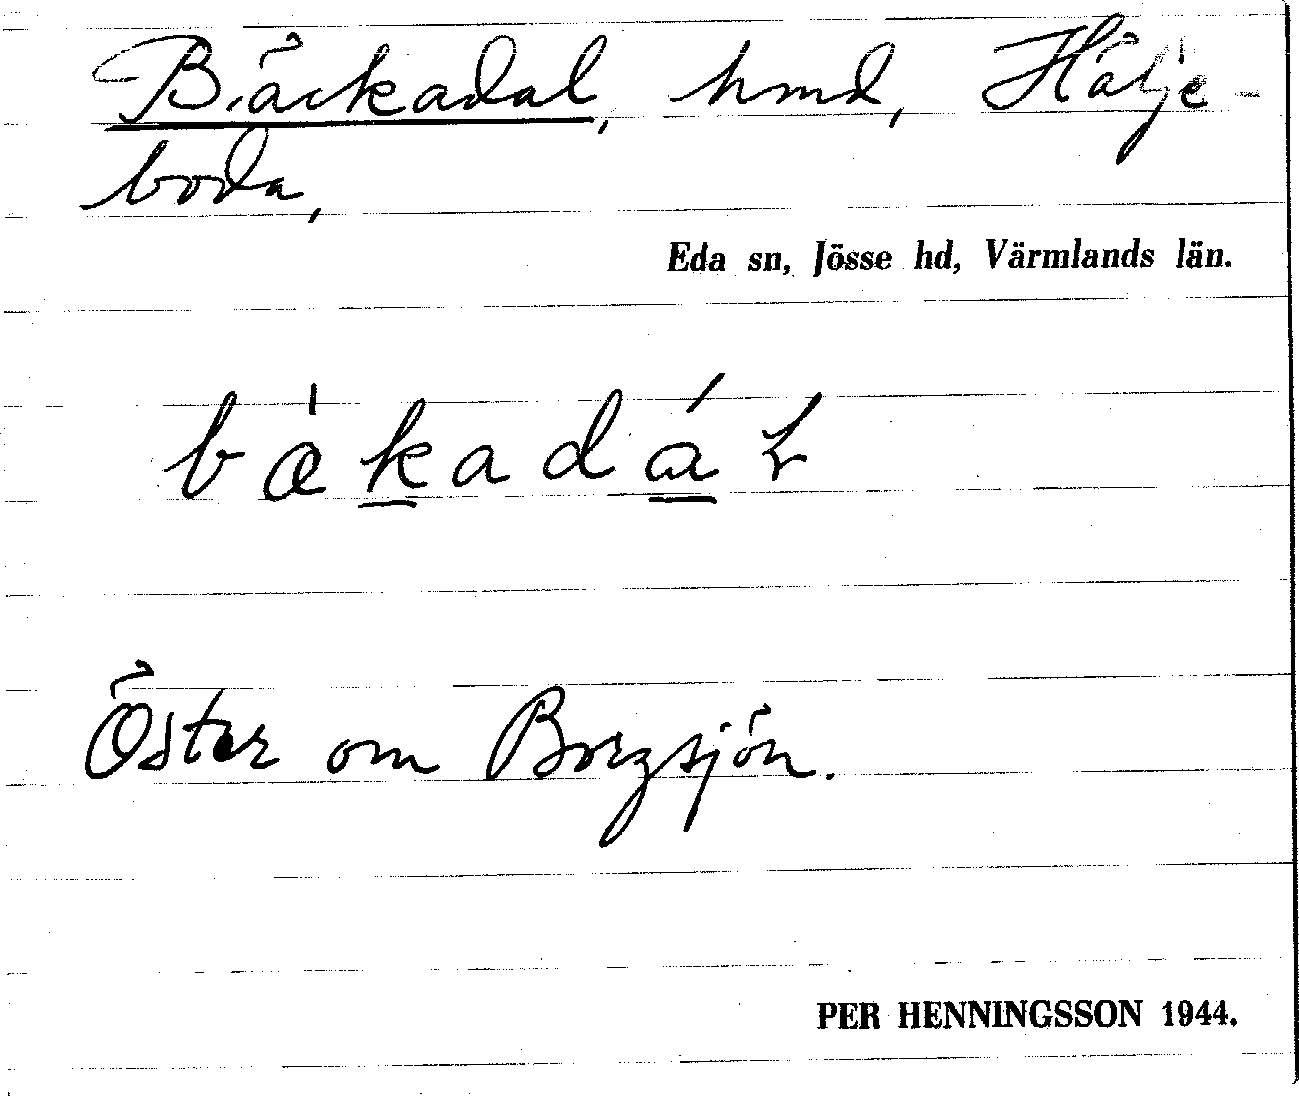 Bäckadal, hmd, Hälje-
boda,
Eda sn, Jösse hd, Värmlands län.
Öster om Borgsjön.
PER HENNINGSSON 1944.